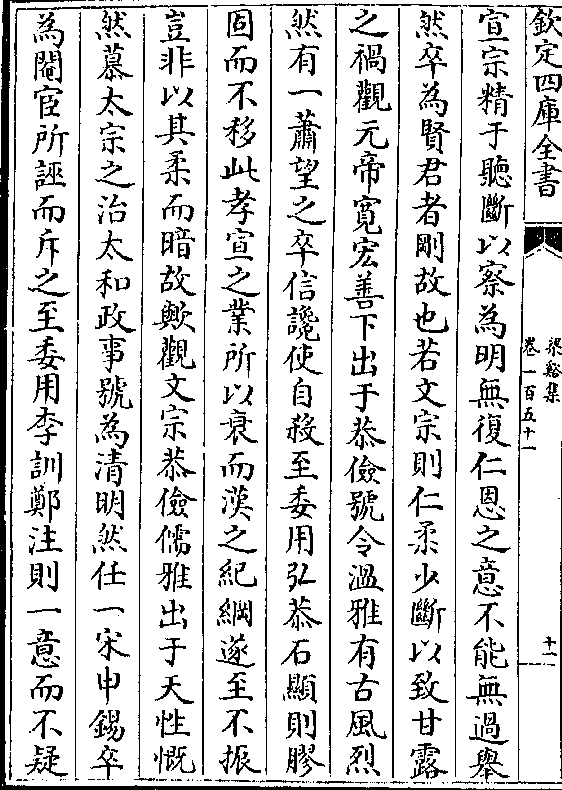 欽定四庫全書
梁谿集
卷一百五十一
十一
宣宗精于聽斷以察為明無復仁恩之意不能無過舉
然卒為賢君者剛故也若文宗則仁柔少斷以致甘露
之禍觀元帝寬宏善下出于恭儉號令溫雅有古風烈
然有一蕭望之卒信讒使自殺至委用弘恭石顯則膠
固而不移此孝宣之業所以衰而漢之紀綱遂至不振
豈非以其柔而暗故歟觀文宗恭儉儒雅出于天性慨
然慕太宗之治太和政事號為清明然任一宋申錫卒
為閹宦所誣而斥之至委用李訓鄭注則一意而不疑